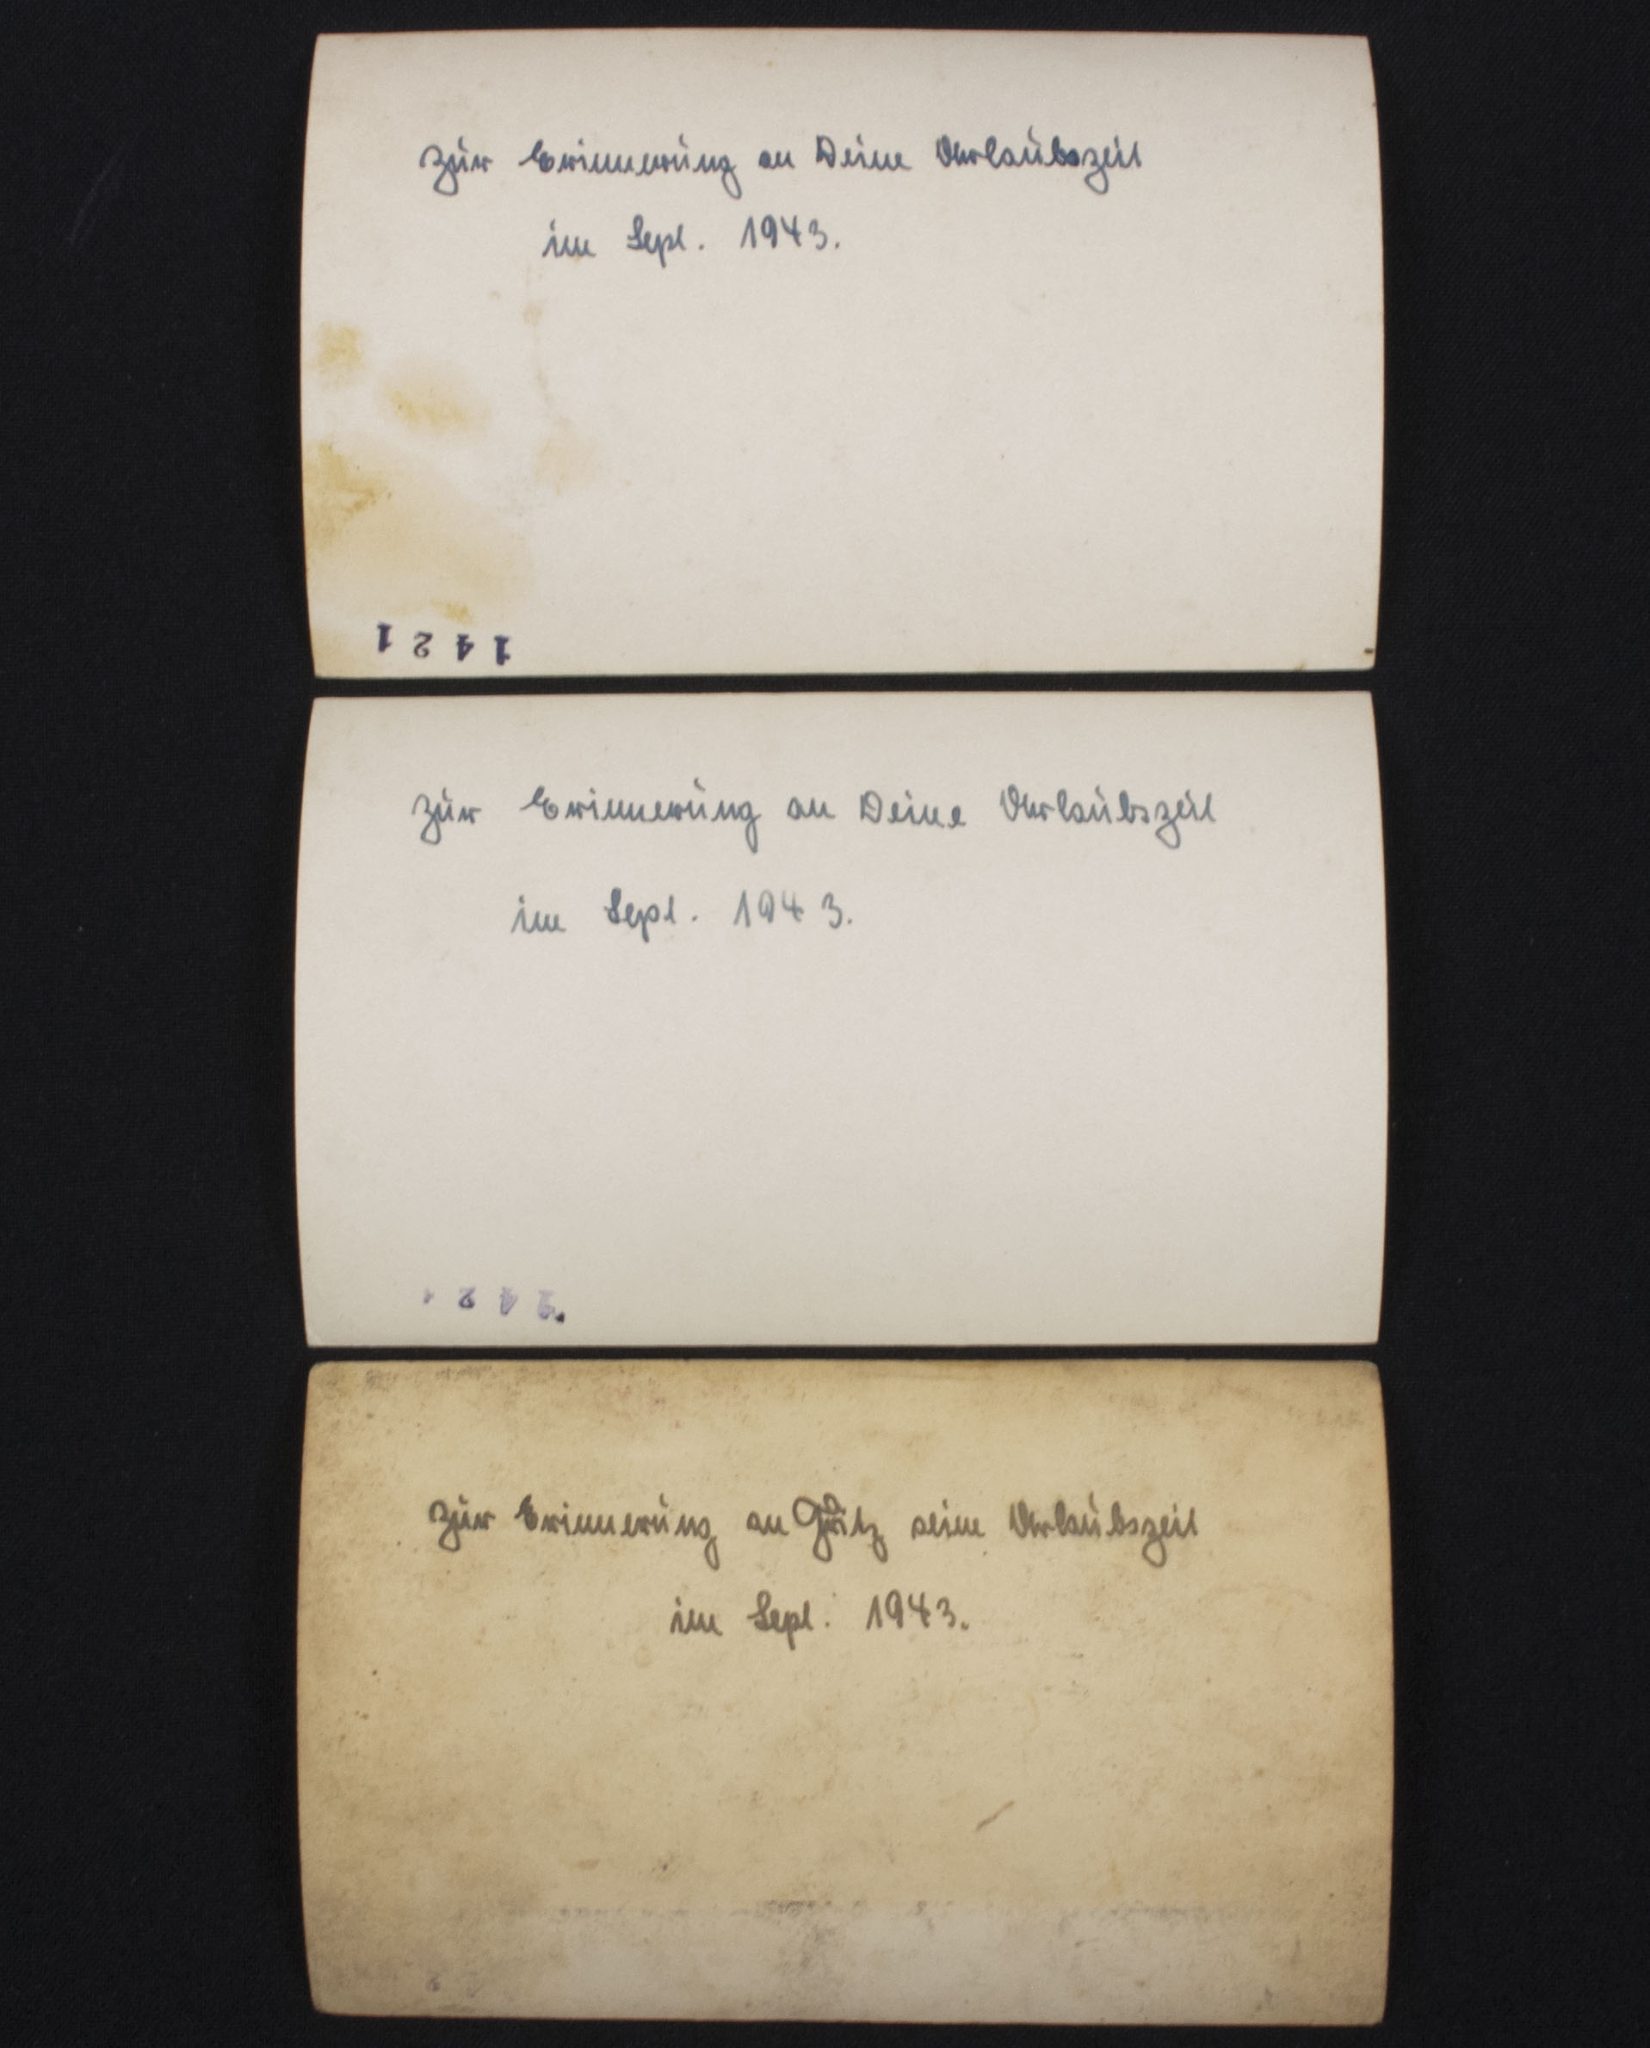 Zur Erinnerung an Deine Urlaubszeit
im Sept. 1943.
1421
Zur Erinnerung an Deine Urlaubszeit
im Sept. 1943.
1421
Zur Erinnerung an Götz seine Urlaubszeit
im Sept. 1943.